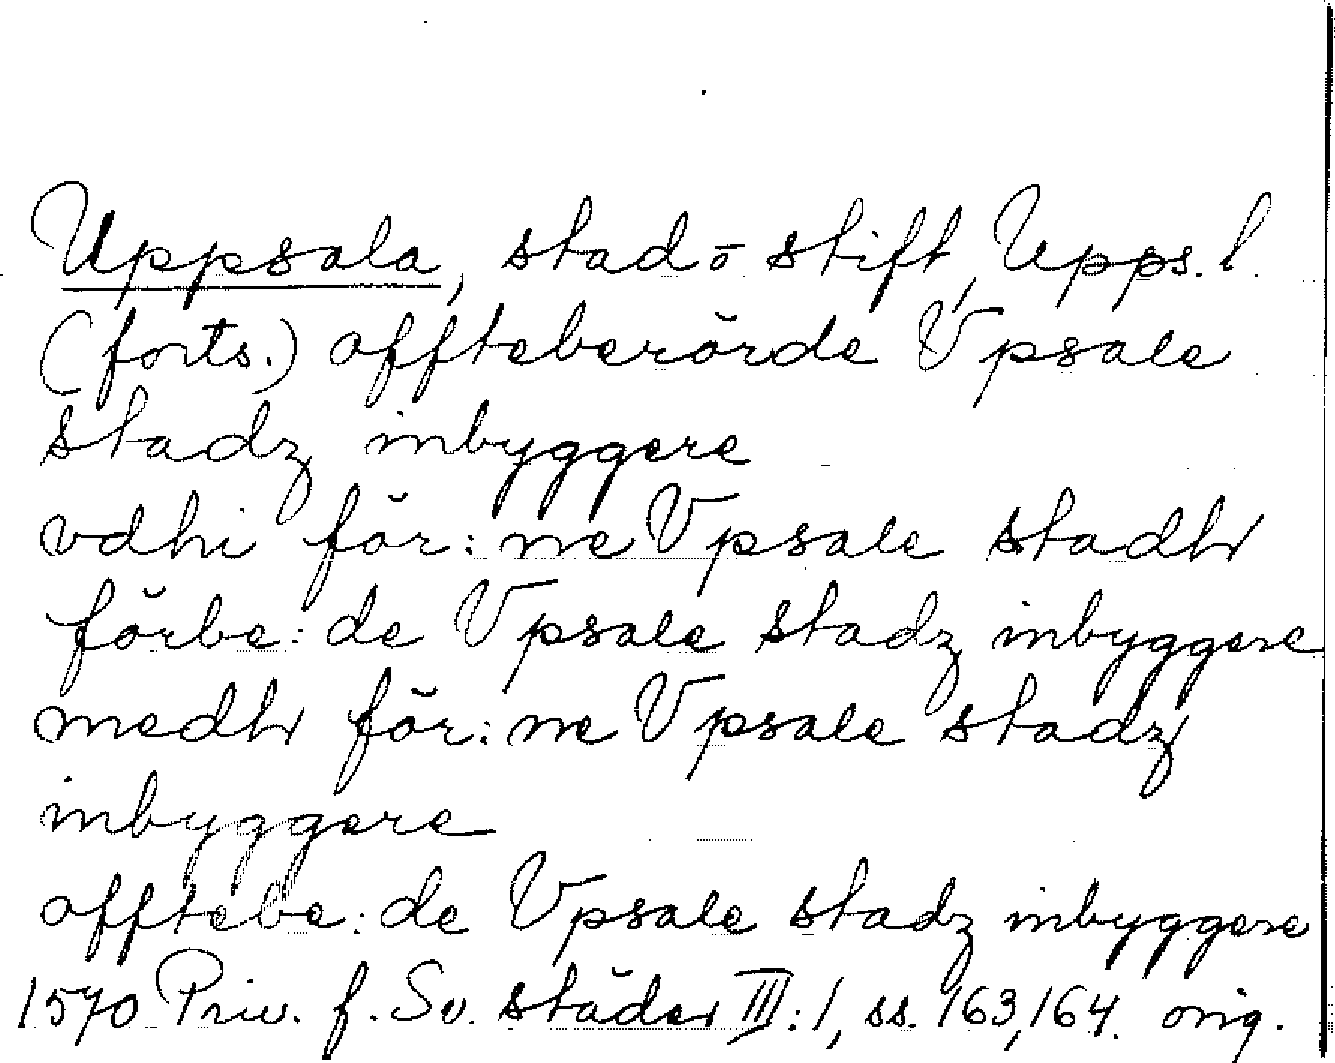 Uppsala, stad o stift, Upps. l.
(forts.) affteberörde Vpsale
stadz inbyggere
vdhi för: ne Vpsale stadh
förbe: de Vpsale stadz inbyggere
medh för: ne Vpsale stadz
inbyggere
afftebe: de Vpsale stadz inbyggere
1570 Priv. f. Sv. städer III:1, ss. 163, 164. orig.